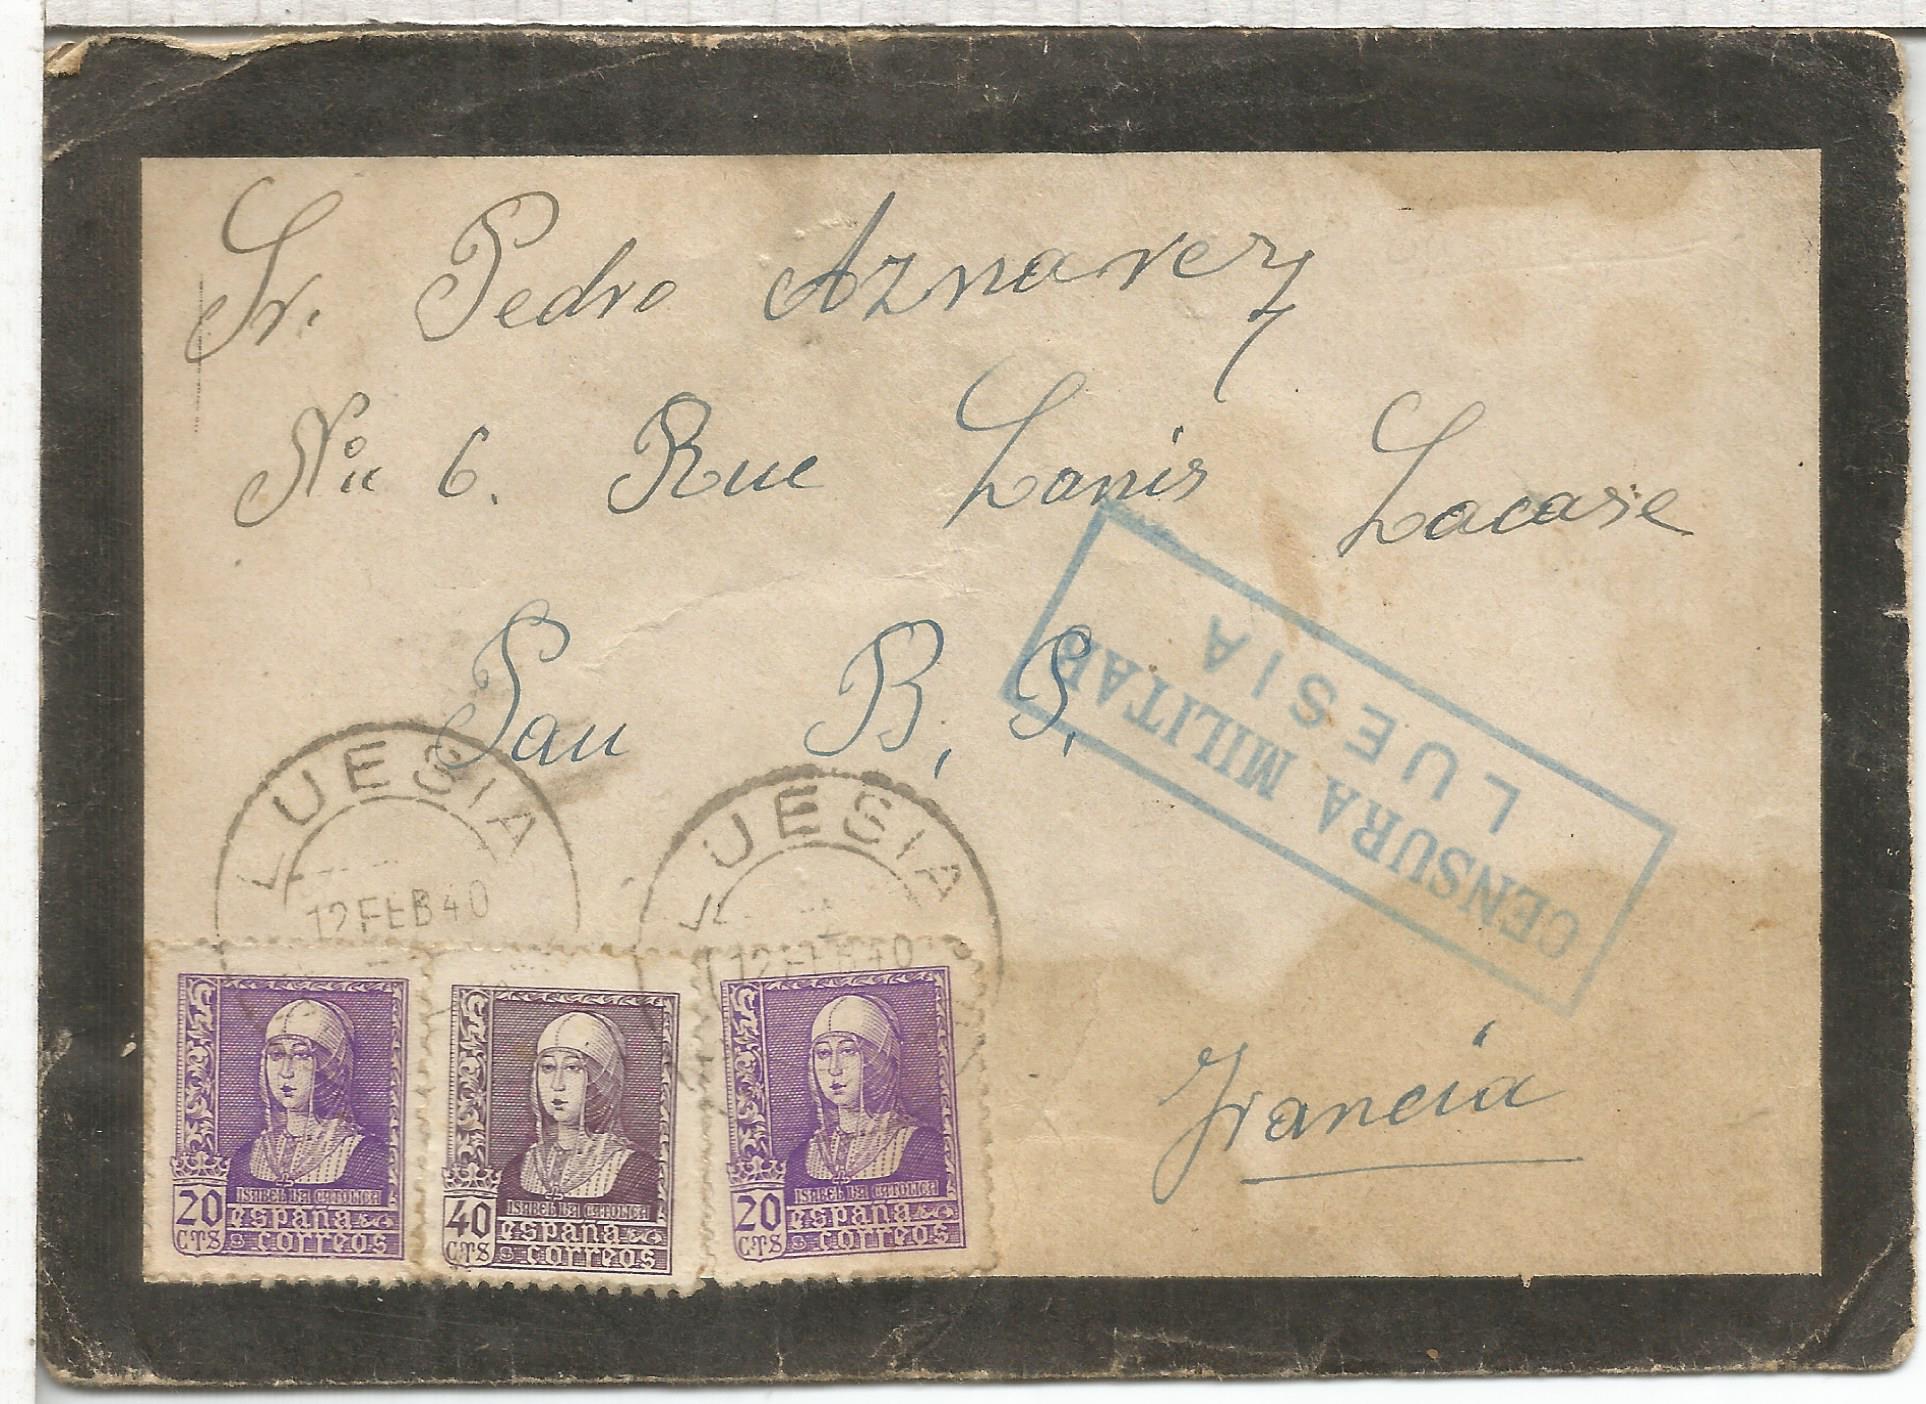 Sr. Pedro Aznarez
Nº 6. Rue Lonis Lacasie
Pau B, P,
CENSURA MILITAR
LUESIA
LUESIA
12 FEB 40
LUESIA
12 FEB 40
Francia
ISABEL LA CATOLICA
20 CTS
españa
correos
ISABEL LA CATOLICA
40 CTS
españa
correos
ISABEL LA CATOLICA
20 CTS
españa
correos